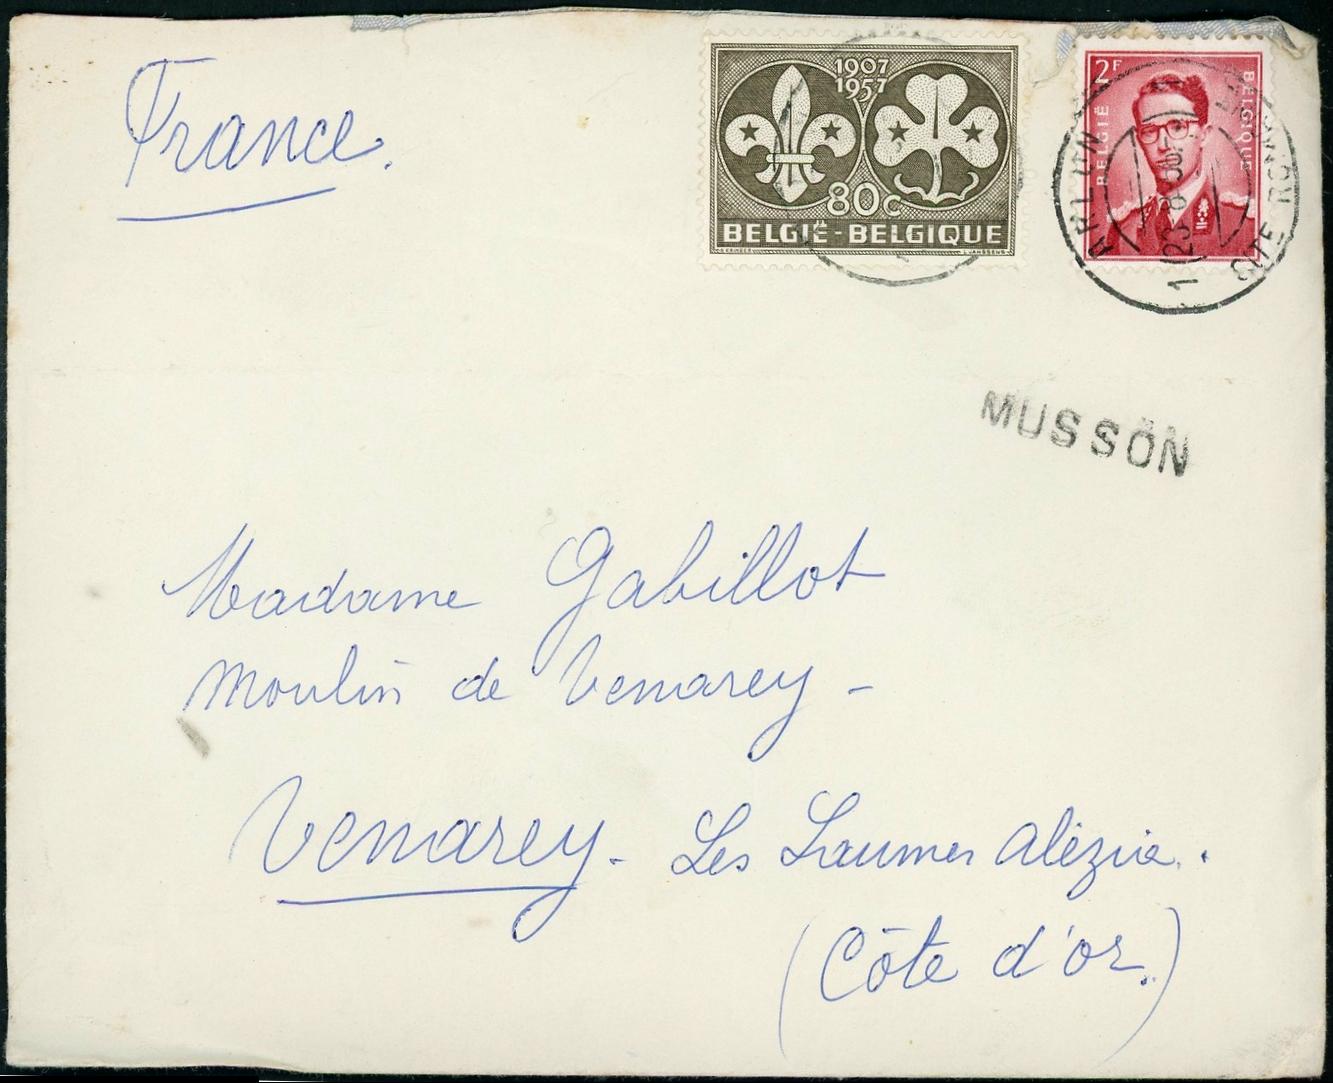 France.
1907
1957
80c
BELGIË-BELGIQUE
2F
BELGIË
BELGIQUE
ARLON
MUSSON
Madame Gabillot
Moulin de Venarey -
Venarey - Les Laumes Alézia.
(Côte d'or.)